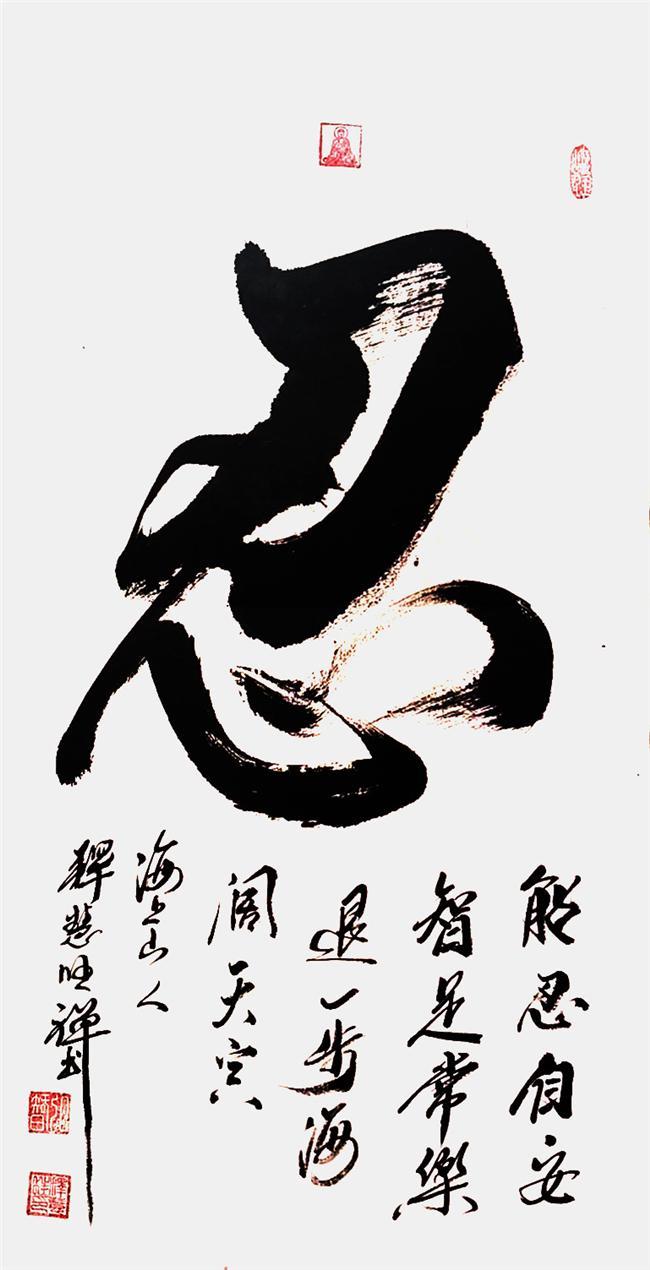 忍
能忍自安
智足常樂
退一步海
阔天空
海上山人
釋慧旺禅书